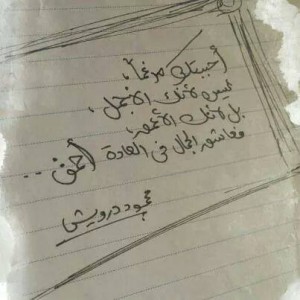 أحببتك مرغماً،
ليس لأنك الأجمل،
بل لأنك الأعمق،
فعاشق الجمال في العادة أحمق ..
محمود درويش